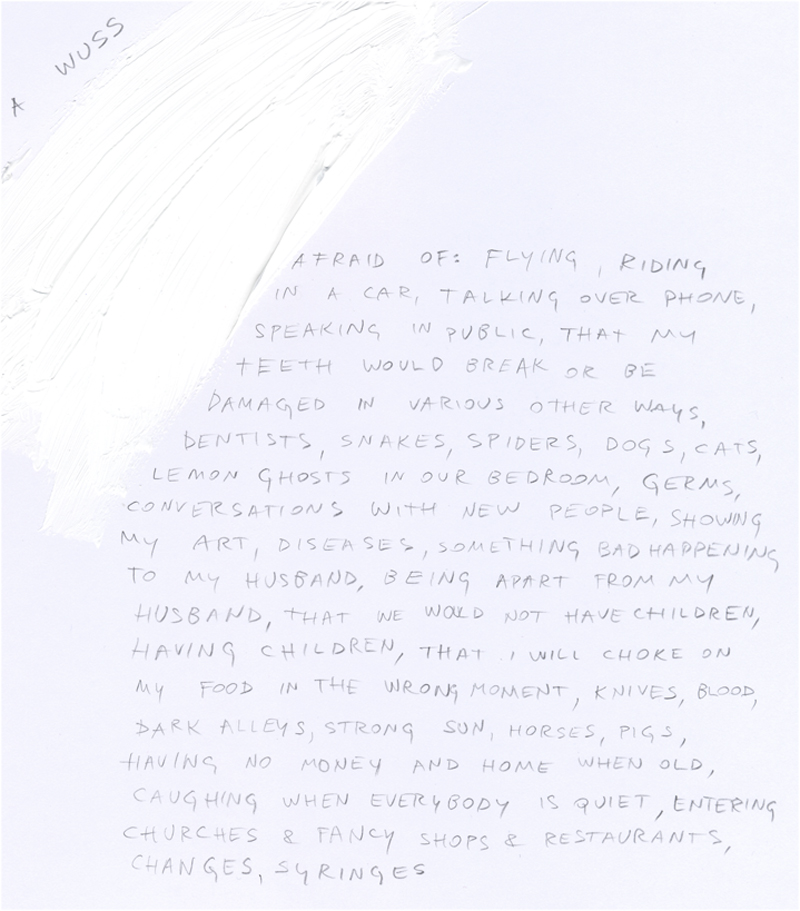 A WUSS
AFRAID OF: FLYING, RIDING
IN A CAR, TALKING OVER PHONE,
SPEAKING IN PUBLIC, THAT MY
TEETH WOULD BREAK OR BE
DAMAGED IN VARIOUS OTHER WAYS,
DENTISTS, SNAKES, SPIDERS, DOGS, CATS,
LEMON GHOSTS IN OUR BEDROOM, GERMS,
CONVERSATIONS WITH NEW PEOPLE, SHOWING
MY ART, DISEASES, SOMETHING BAD HAPPENING
TO MY HUSBAND, BEING APART FROM MY
HUSBAND, THAT WE WOULD NOT HAVE CHILDREN,
HAVING CHILDREN, THAT I WILL CHOKE ON
MY FOOD IN THE WRONG MOMENT, KNIVES, BLOOD,
DARK ALLEYS, STRONG SUN, HORSES, PIGS,
HAVING NO MONEY AND HOME WHEN OLD,
CAUGHING WHEN EVERYBODY IS QUIET, ENTERING
CHURCHES & FANCY SHOPS & RESTAURANTS,
CHANGES, SYRINGES